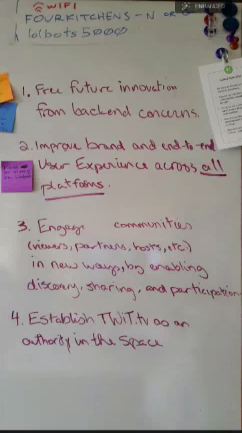 WIFI
FOURKITCHENS - N OR G
lolbots5000
1. Free future innovation
from backend concerns.
2. Improve brand and end-to-end
User Experience across all
platforms.
3. Engage communities
(viewers, partners, hosts, etc)
in new ways, by enabling
discovery, sharing, and participation
4. Establish TWiT.tv as an
authority in the Space